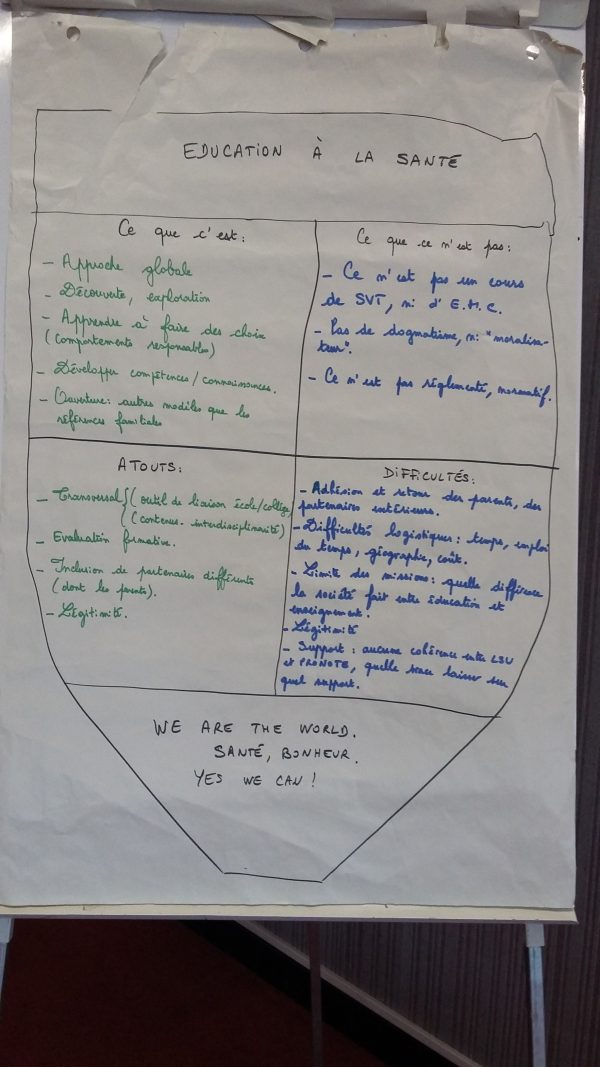 EDUCATION À LA SANTÉ
Ce que c'est:
- Approche globale
- Découverte, exploration
- Apprendre à faire des choix
(comportements responsables)
- Développer compétences/connaissances.
- Ouverture: autres modèles que les
références familiales
Ce que ce n'est pas:
- Ce n'est pas un cours
de SVT, ni d'E.M.C.
- Pas de dogmatisme, ni "moralisa-
teur".
- Ce n'est pas réglementé, normatif.
ATOUTS:
- Transversal { (outil de liaison école/collège)
(contenus. interdisciplinarité)
- Evaluation formative.
- Inclusion de partenaires différents
(dont les parents).
- Légitimité.
DIFFICULTÉS:
- Adhésion et retour des parents, des
partenaires extérieurs.
- Difficultés logistiques: temps, emploi
du temps, géographie, coût.
- Limite des missions: quelle différence
la société fait entre éducation et
enseignement.
- Légitimité
- Support: aucune cohérence entre LSU
et PRONOTE, quelle trace laisser sur
quel support.
WE ARE THE WORLD.
SANTÉ, BONHEUR.
YES WE CAN!